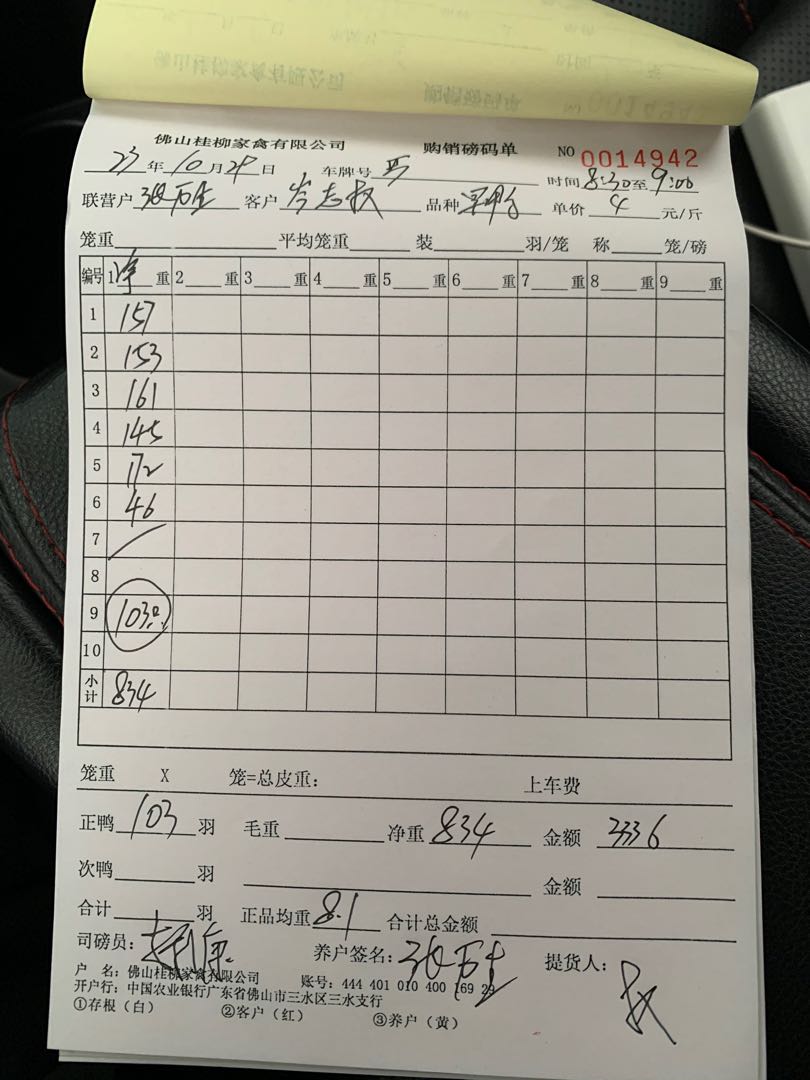 佛山桂柳家禽有限公司 购销磅码单 NO 0014942
23年10月29日 车牌号 时间8:30至9:00
联营户 张万生 客户 岑志权 品种 单价 4 元/斤
笼重 平均笼重 装 羽/笼 称 笼/磅
编号 1净重 2 重 3 重 4 重 5 重 6 重 7 重 8 重 9 重
1 157
2 153
3 161
4 145
5 172
6 46
7
8
9 103只
10
小计 834
笼重 X 笼=总皮重: 上车费
正鸭 103 羽 毛重 净重 834 金额 3336
次鸭 羽 金额
合计 羽 正品均重 8.1 合计总金额
司磅员: 养户签名: 张万生 提货人: 权
户 名: 佛山桂柳家禽有限公司 账号: 444 401 010 400 169 29
开户行: 中国农业银行广东省佛山市三水区三水支行
①存根(白) ②客户(红) ③养户(黄)